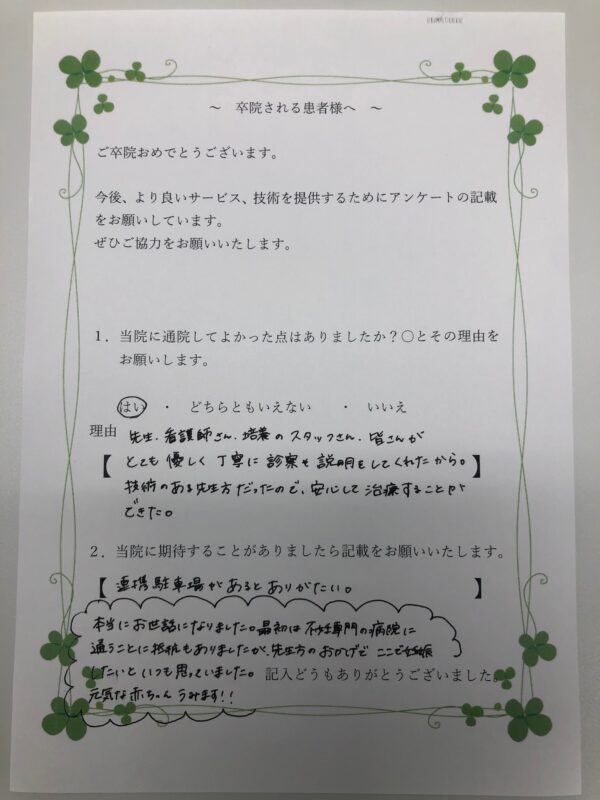 ～　卒院される患者様へ　～
ご卒院おめでとうございます。
今後、より良いサービス、技術を提供するためにアンケートの記載
をお願いしています。
ぜひご協力をお願いいたします。
１．当院に通院してよかった点はありましたか？〇とその理由を
お願いします。
はい　・　どちらともいえない　・　いいえ
理由 先生、看護師さん、培養のスタッフさん、皆さんが
【 とても優しく丁寧に診察も説明もしてくれたから。 】
技術のある先生方だったので、安心して治療することが
できた。
２．当院に期待することがありましたら記載をお願いいたします。
【 連携駐車場があるとありがたい。 】
本当にお世話になりました。最初は不妊専門の病院に
通うことに抵抗もありましたが、先生方のおかげで ここで妊娠
したいといつも思っていました。 記入どうもありがとうございました。
元気な赤ちゃんうみます!!